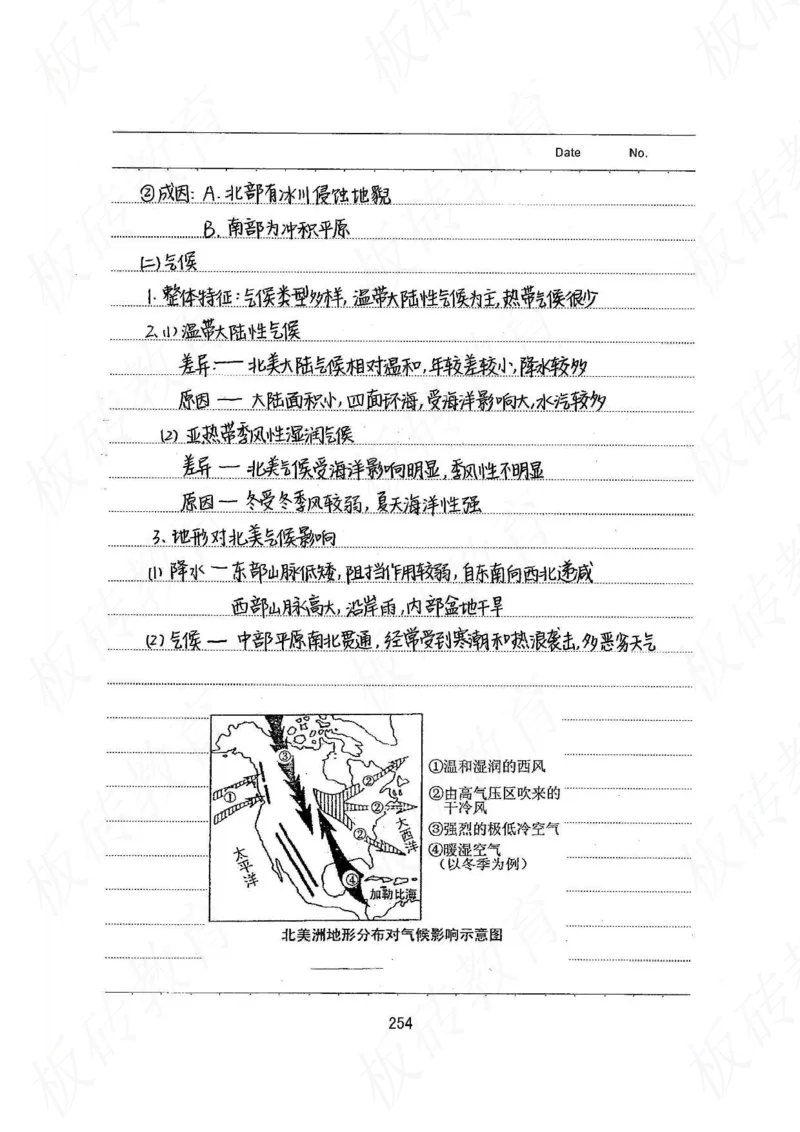 Date No.
②成因: A.北部有冰川侵蚀地貌
B.南部为冲积平原
(二)气候
1.整体特征:气候类型多样,温带大陆性气候为主,热带气候很少
2.(1)温带大陆性气候
差异:——北美大陆气候相对温和,年较差较小,降水较多
原因——大陆面积小,四面环海,受海洋影响大,水汽较多
(2)亚热带季风性湿润气候
差异——北美气候受海洋影响明显,季风性不明显
原因——冬受冬季风较弱,夏天海洋性强
3.地形对北美气候影响
(1)降水——东部山脉低矮,阻挡作用较弱,自东南向西北递减
西部山脉高大,沿岸雨,内部盆地干旱
(2)气候——中部平原南北贯通,经常受到寒潮和热浪袭击,多恶劣天气
③
①
②
②
②
④
太平洋
大西洋
加勒比海
①温和湿润的西风
②由高气压区吹来的
干冷风
③强烈的极低冷空气
④暖湿空气
(以冬季为例)
北美洲地形分布对气候影响示意图
254
板砖教育